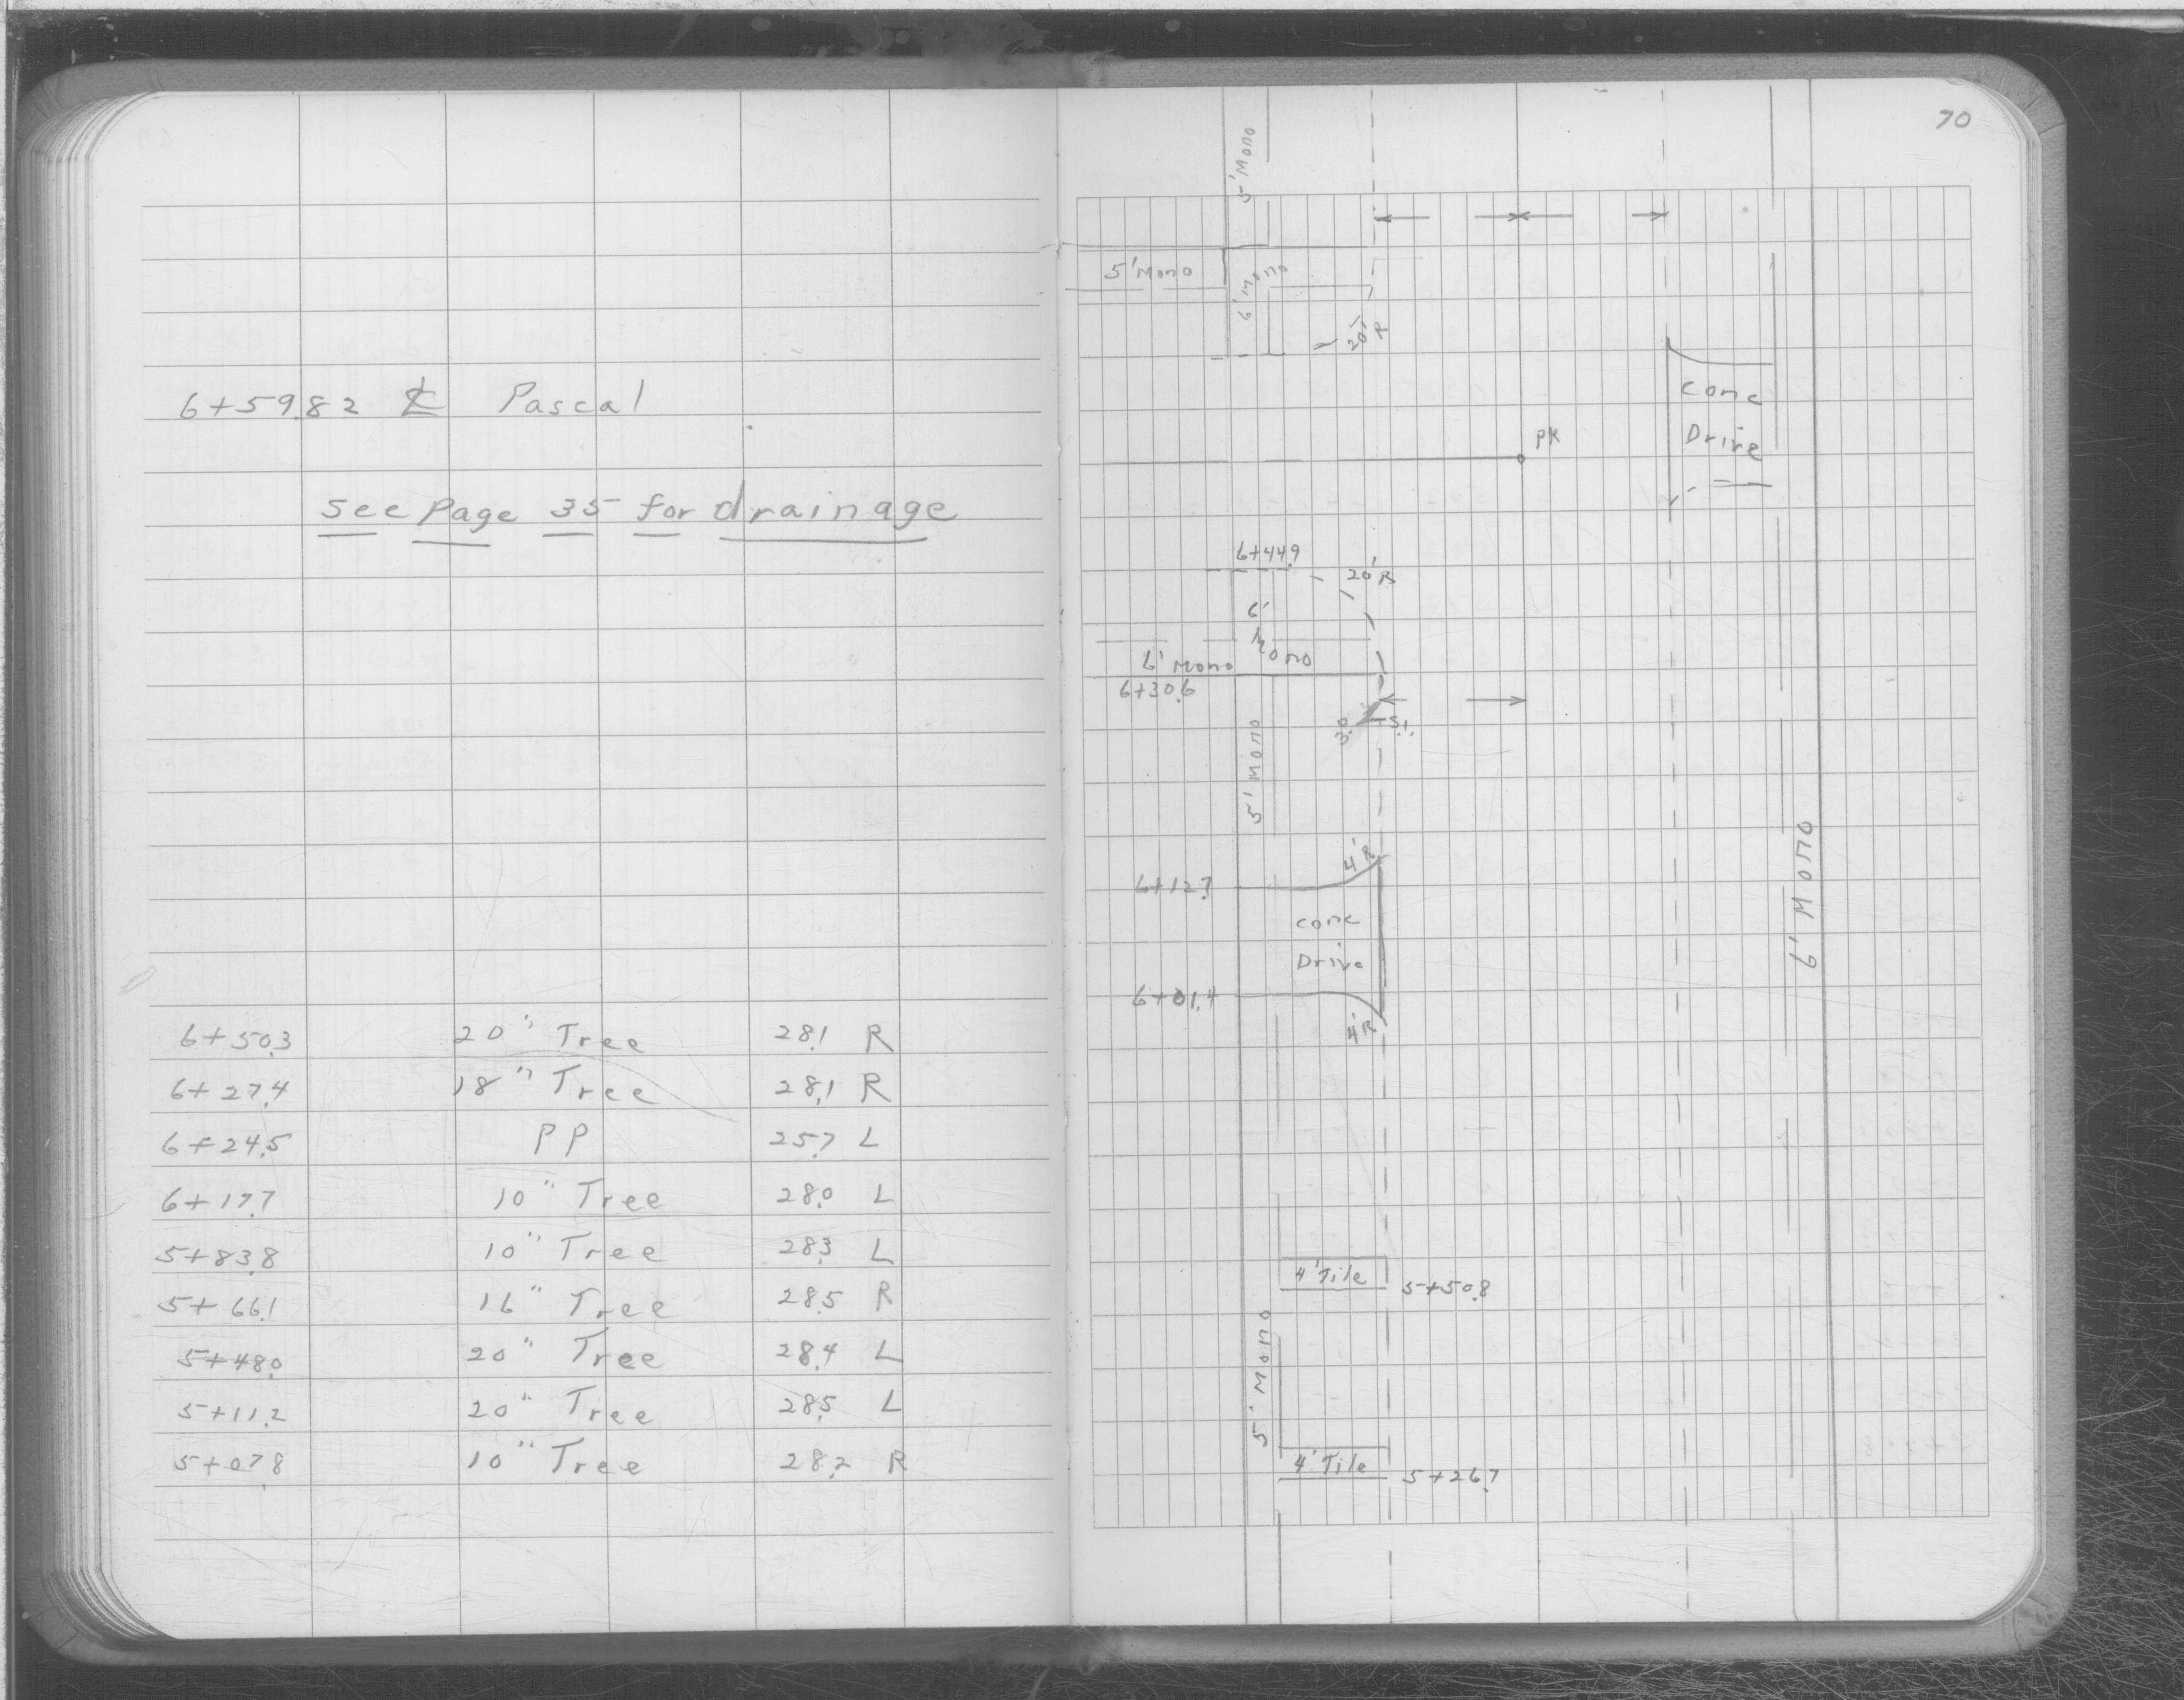 6+59.82 ℄ Pascal
see page 35 for drainage
6+50.3 20" Tree 28.1 R
6+27.4 18" Tree 28.1 R
6+24.5 PP 25.7 L
6+17.7 10" Tree 28.0 L
5+83.8 10" Tree 28.3 L
5+66.1 16" Tree 28.5 R
5+48.0 20" Tree 28.4 L
5+11.2 20" Tree 28.5 L
5+07.8 10" Tree 28.2 R
70
5' Mono
5' Mono
6' Mono
20' R
conc
Drive
PK
6+44.9
20' R
6'
Mono
6' Mono
6+30.6
3.0
5.1
5' Mono
4' R
6+12.7
conc
Drive
6+01.4
4' R
6' Mono
4' Tile
5+50.8
5' Mono
4' Tile
5+26.7